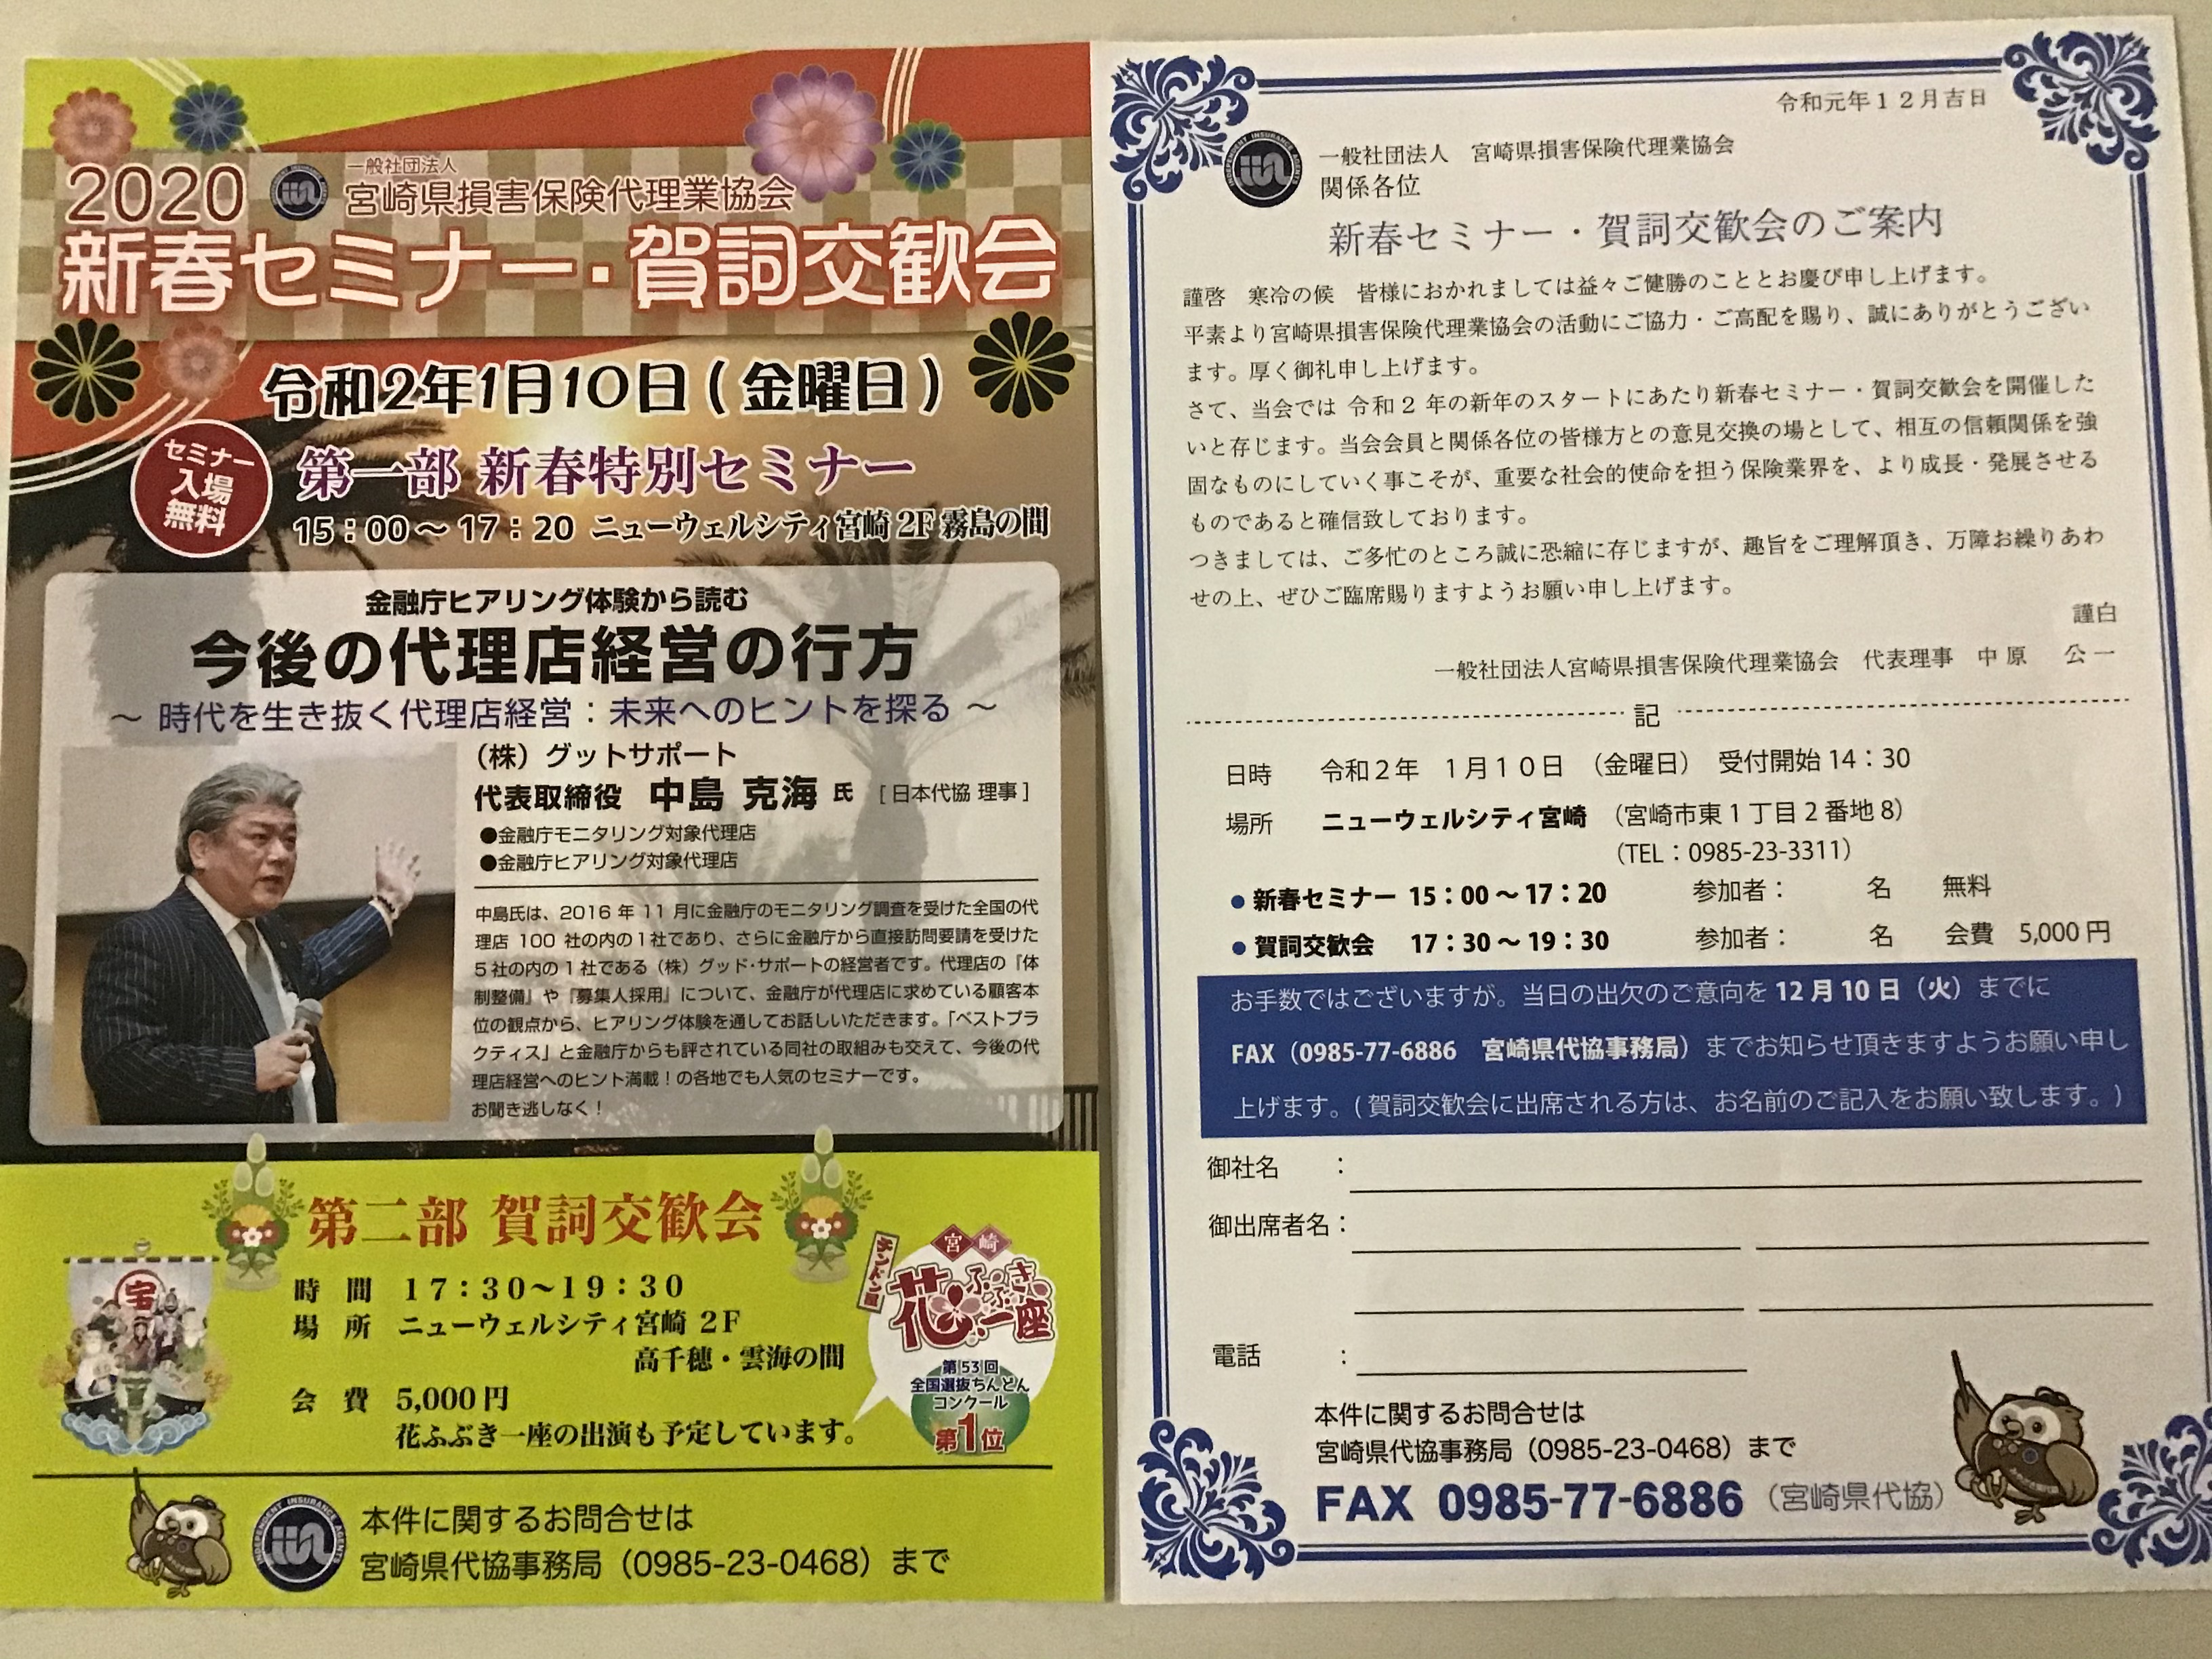 2020
一般社団法人
宮崎県損害保険代理業協会
新春セミナー・賀詞交歓会
令和2年1月10日(金曜日)
セミナー
入場
無料
第一部 新春特別セミナー
15:00～17:20 ニューウェルシティ宮崎 2F 霧島の間
金融庁ヒアリング体験から読む
今後の代理店経営の行方
～ 時代を生き抜く代理店経営：未来へのヒントを探る ～
（株）グットサポート
代表取締役 中島 克海 氏 [日本代協 理事]
●金融庁モニタリング対象代理店
●金融庁ヒアリング対象代理店
中島氏は、2016 年 11 月に金融庁のモニタリング調査を受けた全国の代
理店 100 社の内の1社であり、さらに金融庁から直接訪問要請を受けた
5社の内の1社である（株）グッド・サポートの経営者です。代理店の『体
制整備』や『募集人採用』について、金融庁が代理店に求めている顧客本
位の観点から、ヒアリング体験を通してお話しいただきます。「ベストプラ
クティス」と金融庁からも評されている同社の取組みも交えて、今後の代
理店経営へのヒント満載！の各地でも人気のセミナーです。
お聞き逃しなく！
第二部 賀詞交歓会
時 間 17:30～19:30
場 所 ニューウェルシティ宮崎 2F
高千穂・雲海の間
会 費 5,000 円
花ふぶき一座の出演も予定しています。
宝
チンドン屋
宮崎
花ふぶき一座
第53回
全国選抜ちんどん
コンクール
第1位
INDEPENDENT INSURANCE AGENTS
本件に関するお問合せは
宮崎県代協事務局（0985-23-0468）まで
令和元年12月吉日
INDEPENDENT INSURANCE AGENTS
一般社団法人 宮崎県損害保険代理業協会
関係各位
新春セミナー・賀詞交歓会のご案内
謹啓 寒冷の候 皆様におかれましては益々ご健勝のこととお慶び申し上げます。
平素より宮崎県損害保険代理業協会の活動にご協力・ご高配を賜り、誠にありがとうござい
ます。厚く御礼申し上げます。
さて、当会では 令和 2 年の新年のスタートにあたり新春セミナー・賀詞交歓会を開催した
いと存じます。当会会員と関係各位の皆様方との意見交換の場として、相互の信頼関係を強
固なものにしていく事こそが、重要な社会的使命を担う保険業界を、より成長・発展させる
ものであると確信致しております。
つきましては、ご多忙のところ誠に恐縮に存じますが、趣旨をご理解頂き、万障お繰りあわ
せの上、ぜひご臨席賜りますようお願い申し上げます。
謹白
一般社団法人宮崎県損害保険代理業協会 代表理事 中原 公一
記
日時 令和2年 1月10日 （金曜日） 受付開始 14：30
場所 ニューウェルシティ宮崎 （宮崎市東 1 丁目 2 番地 8）
（TEL：0985-23-3311）
●新春セミナー 15：00～17：20 参加者： 名 無料
●賀詞交歓会 17：30～19：30 参加者： 名 会費 5,000 円
お手数ではございますが。当日の出欠のご意向を 12 月 10 日（火）までに
FAX（0985-77-6886 宮崎県代協事務局）までお知らせ頂きますようお願い申し
上げます。(賀詞交歓会に出席される方は、お名前のご記入をお願い致します。)
御社名 ：
御出席者名：
電話 ：
本件に関するお問合せは
宮崎県代協事務局（0985-23-0468）まで
FAX 0985-77-6886（宮崎県代協）